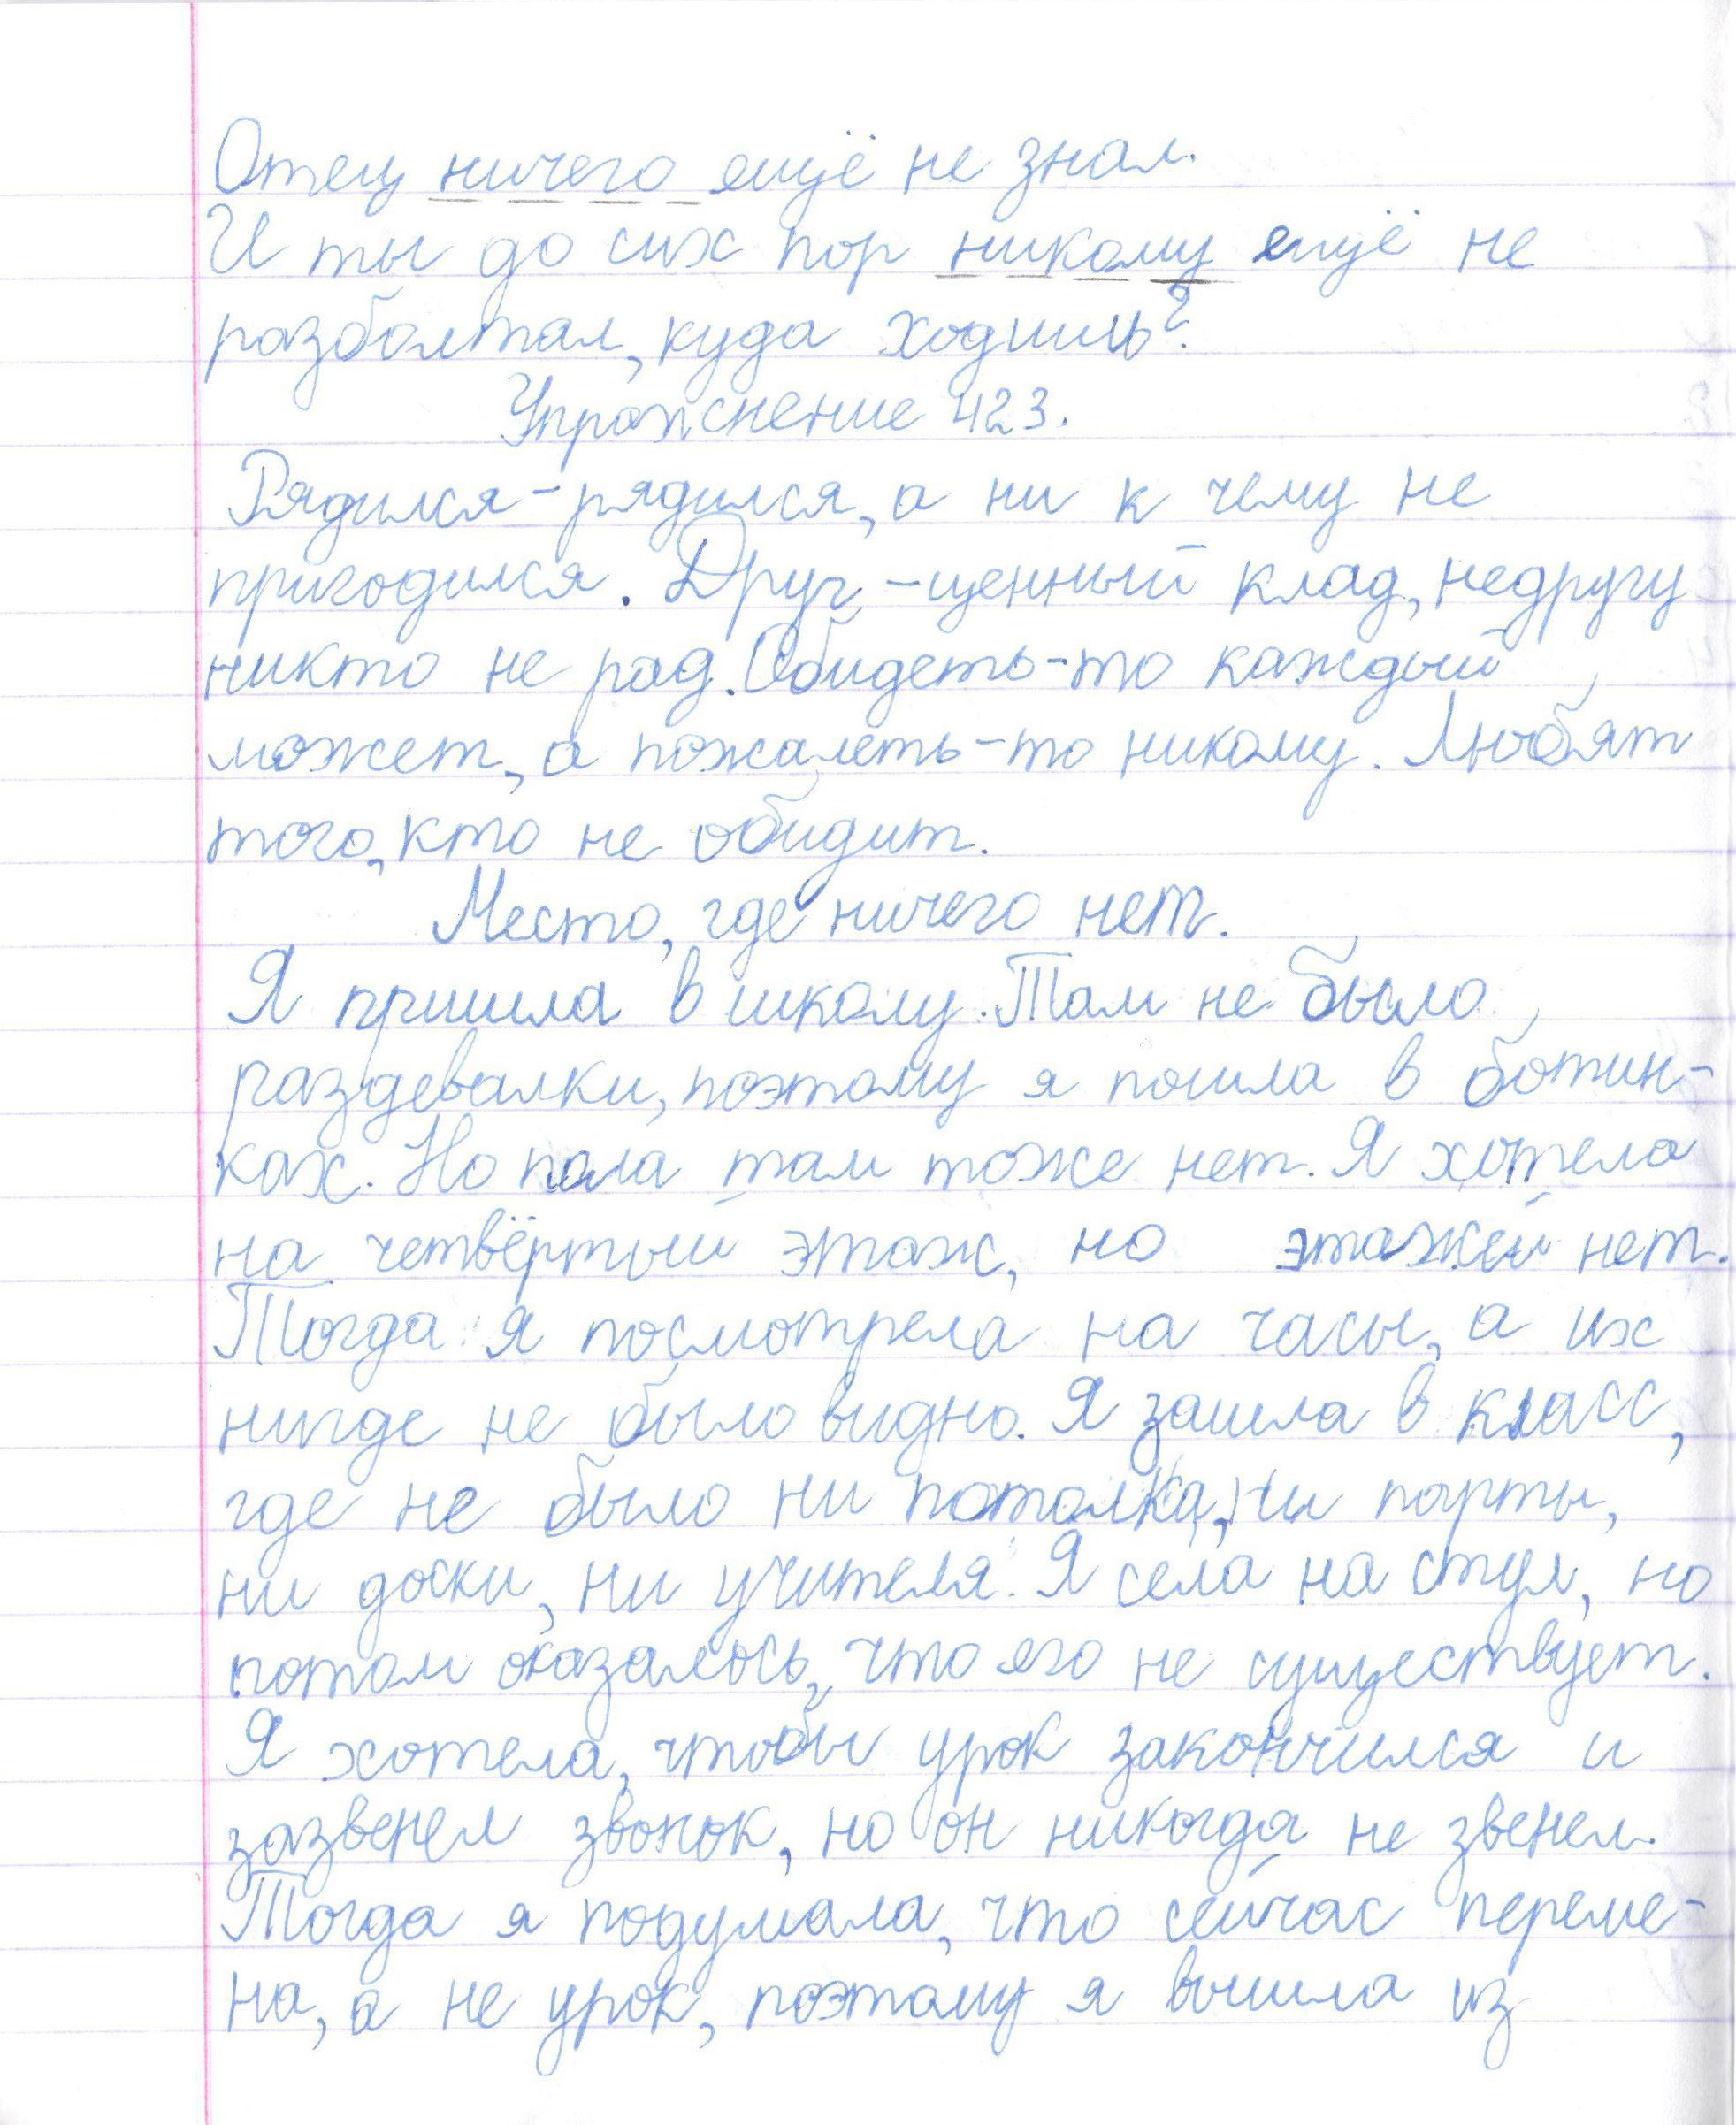 Отец ничего ещё не знал.
И ты до сих пор никому ещё не
разболтал, куда ходишь?
Упражнение 423.
Рядился-рядился, а ни к чему не
пригодился. Друг - ценный клад, недругу
никто не рад. Обидеть-то каждый
может, а пожалеть-то никому. Любят
того, кто не обидит.
Место, где ничего нет.
Я пришла в школу. Там не было
раздевалки, поэтому я пошла в ботин-
ках. Но пола там тоже нет. Я хотела
на четвёртый этаж, но этажей нет.
Тогда я посмотрела на часы, а их
нигде не было видно. Я зашла в класс,
где не было ни потолка, ни парты,
ни доски, ни учителя. Я села на стул, но
потом оказалось, что его не существует.
Я хотела, чтобы урок закончился и
зазвенел звонок, но он никогда не звенел.
Тогда я подумала, что сейчас переме-
на, а не урок, поэтому я вышла из